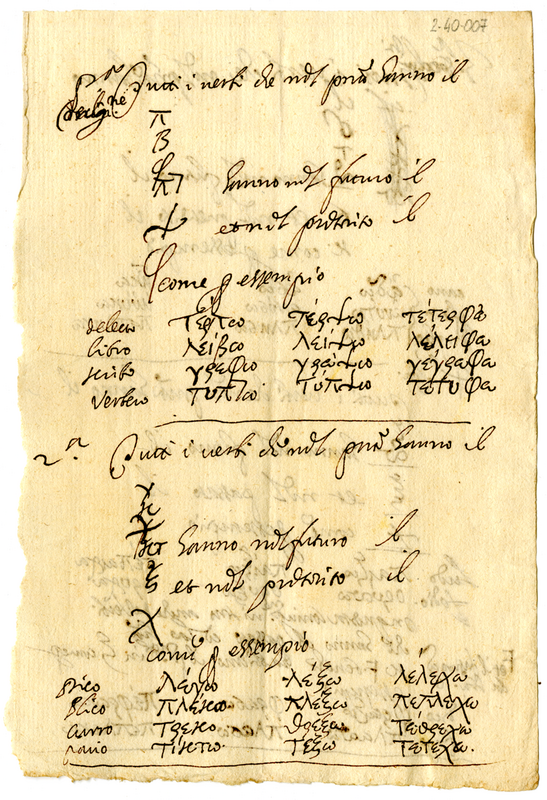 2-40-007
Tutti i verbi che nel pñte hanno il
π
β
φ
πτ hanno nel futuro il
ψ et nel preterito il
φ come p essempio
delecto τέρπω τέρψω τέτερφα
libo λείβω λείψω λέλειφα
scribo γράφω γράψω γέγραφα
verbero τύπτω τύψω τέτυφα
2.ª Tutti i verbi che nel pñte hanno il
γ
κ
χ
κτ hanno nel futuro il
ξ et nel preterito il
χ
come p essempio
dico λέγω λέξω λέλεχα
plico πλέκω πλέξω πέπλεχα
curro τρέχω θρέξω τέθρεχα
pario τίκτω τέξω τέτεχα.